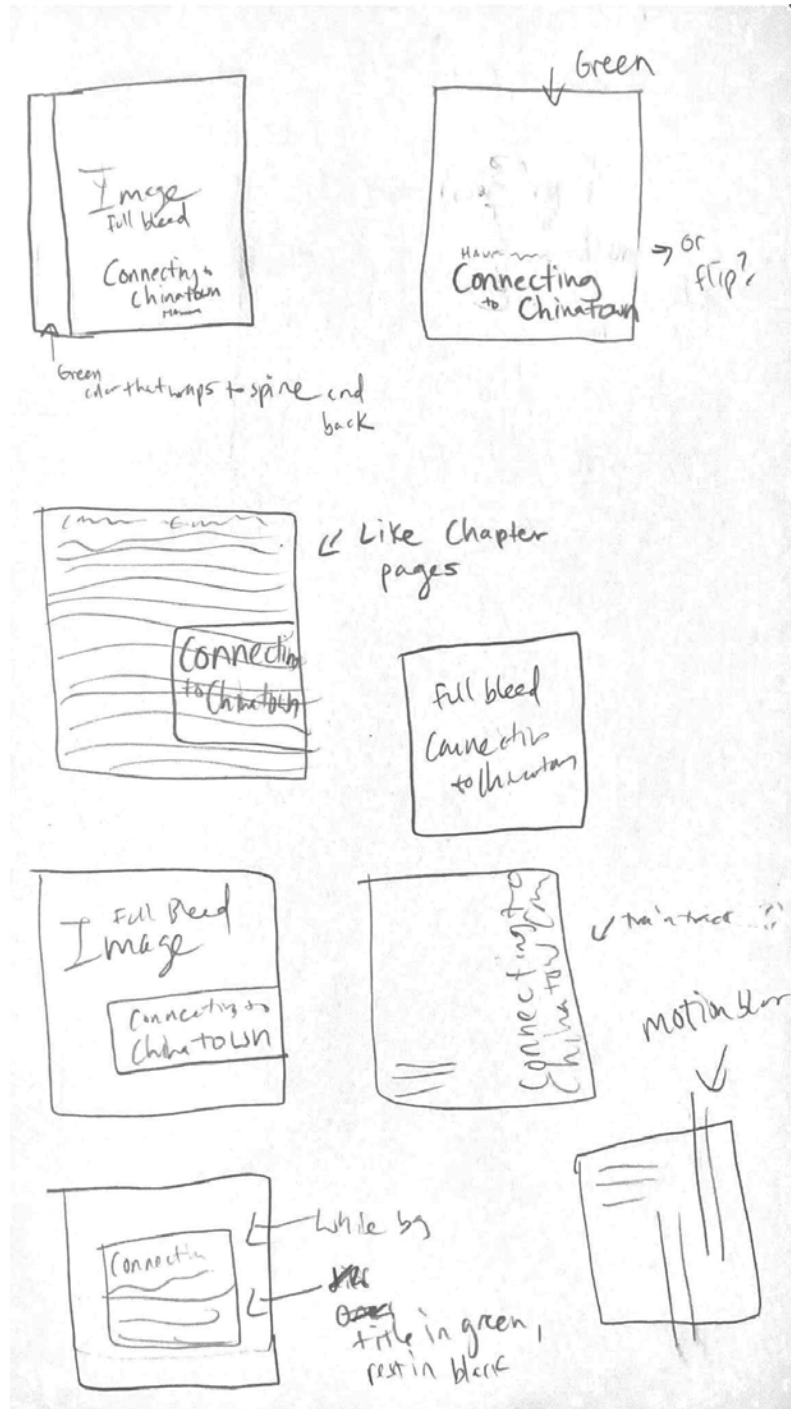 Image
full bleed
Connecting to
Chinatown
Green
color that wraps to spine and
back
Green
Connecting
to Chinatown
or
flip?
Like Chapter
pages
Connecting
to Chinatown
Full bleed
Connecting
to Chinatown
Full Bleed
Image
Connecting to
Chinatown
Connecting to
Chinatown
train track
motion blur
Connecting
White bg
title in green,
rest in black